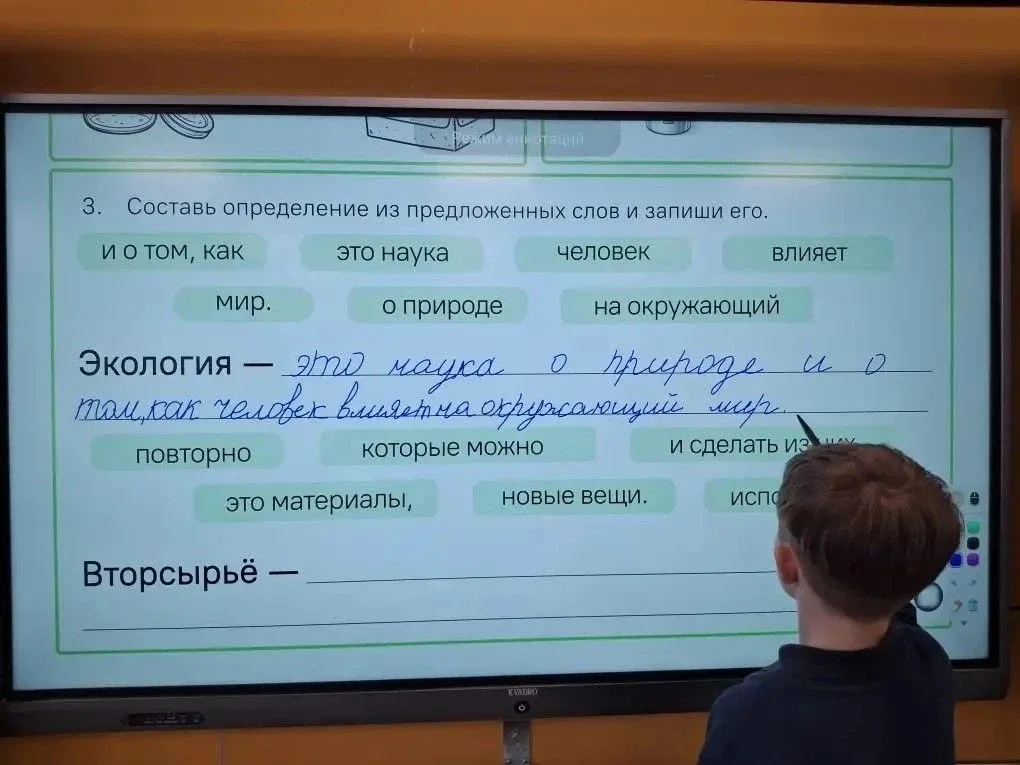 Режим аннотаций
3. Составь определение из предложенных слов и запиши его.
и о том, как это наука человек влияет
мир. о природе на окружающий
Экология — это наука о природе и о
том, как человек влияет на окружающий мир.
повторно которые можно и сделать из них
это материалы, новые вещи.
Вторсырьё —
KVADRO